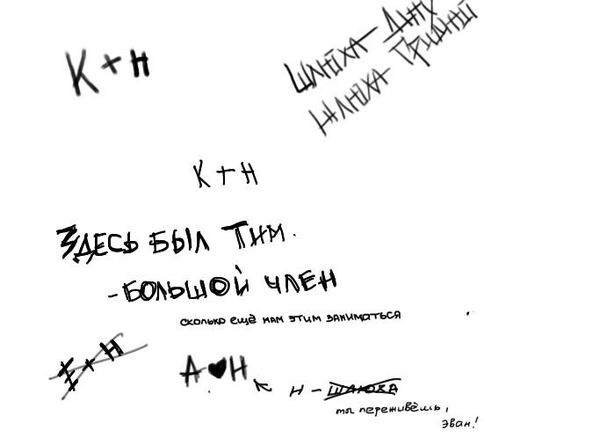 К + Н
ШЛЮХА - ДИК
ШЛЮХА - ГРИДНИЙ
К + Н
ЗДЕСЬ БЫЛ ТИМ.
- БОЛЬШОЙ ЧЛЕН
сколько ещё нам этим заниматься
+ Н
А ♥ Н
К
Н - ШЛЮХА
ты переживёшь,
Эван!